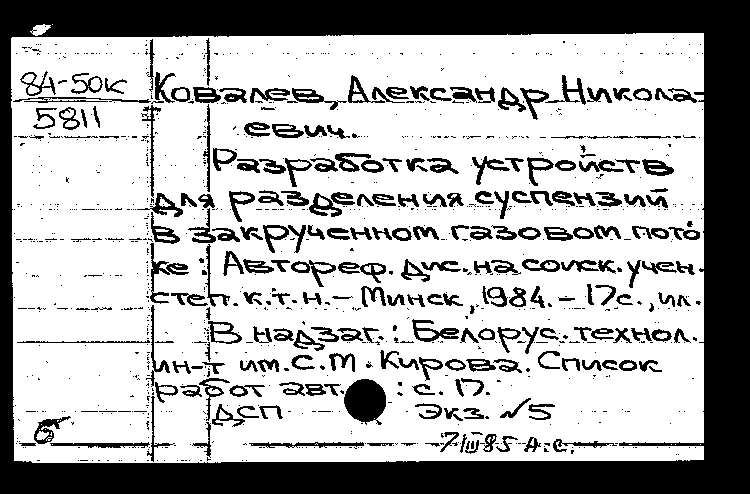 84-50к
5811
Ковалев, Александр Никола-
евич.
Разработка устройств
для разделения суспензий
в закрученном газовом пото-
ке : Автореф. дис. на соиск. учен.
степ. к.т.н. – Минск, 1984. – 17с., ил.
В надзаг.: Белорус. технол.
ин-т им. С.М. Кирова. Список
работ авт. : с. 17.
ДСП Экз. №5
б
7/III 85 А.С.